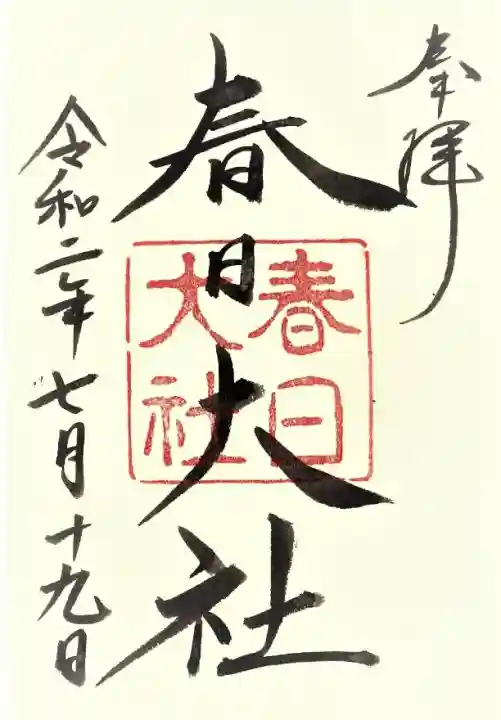 奉拝
春日大社
春日
大社
令和二年七月十九日